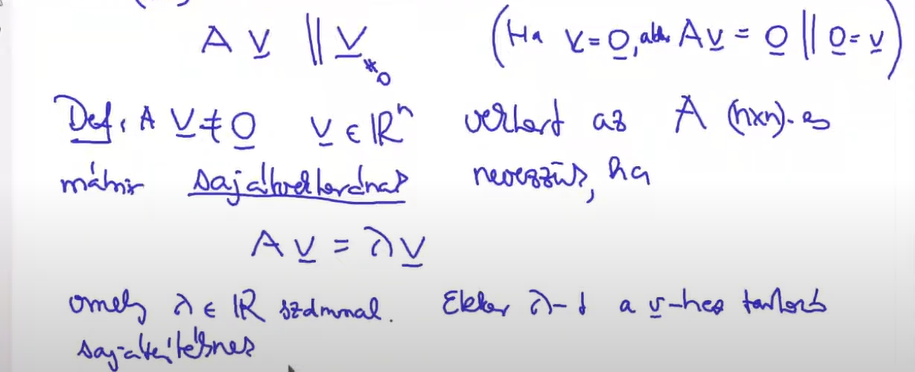 A v ∥ v ≠0 (Ha v=0, akkor Av = 0 ∥ 0=v)
Def: A v≠0 v∈ℝⁿ vektort az A (n×n)-es
mátrix sajátvektorának nevezzük, ha
A v = λ v
amely λ∈ℝ számmal. Ekkor λ-t a v-hez tartozó
sajátértéknek